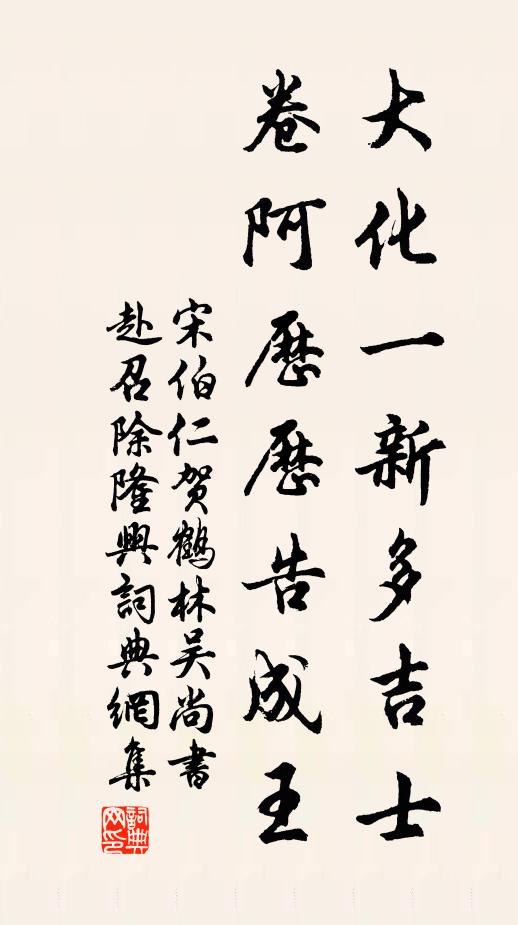 大化一新多吉士
卷阿歷歷告成王
宋伯仁賀鶴林吴尚書
赴召除隆興詞典網集
詞典網印